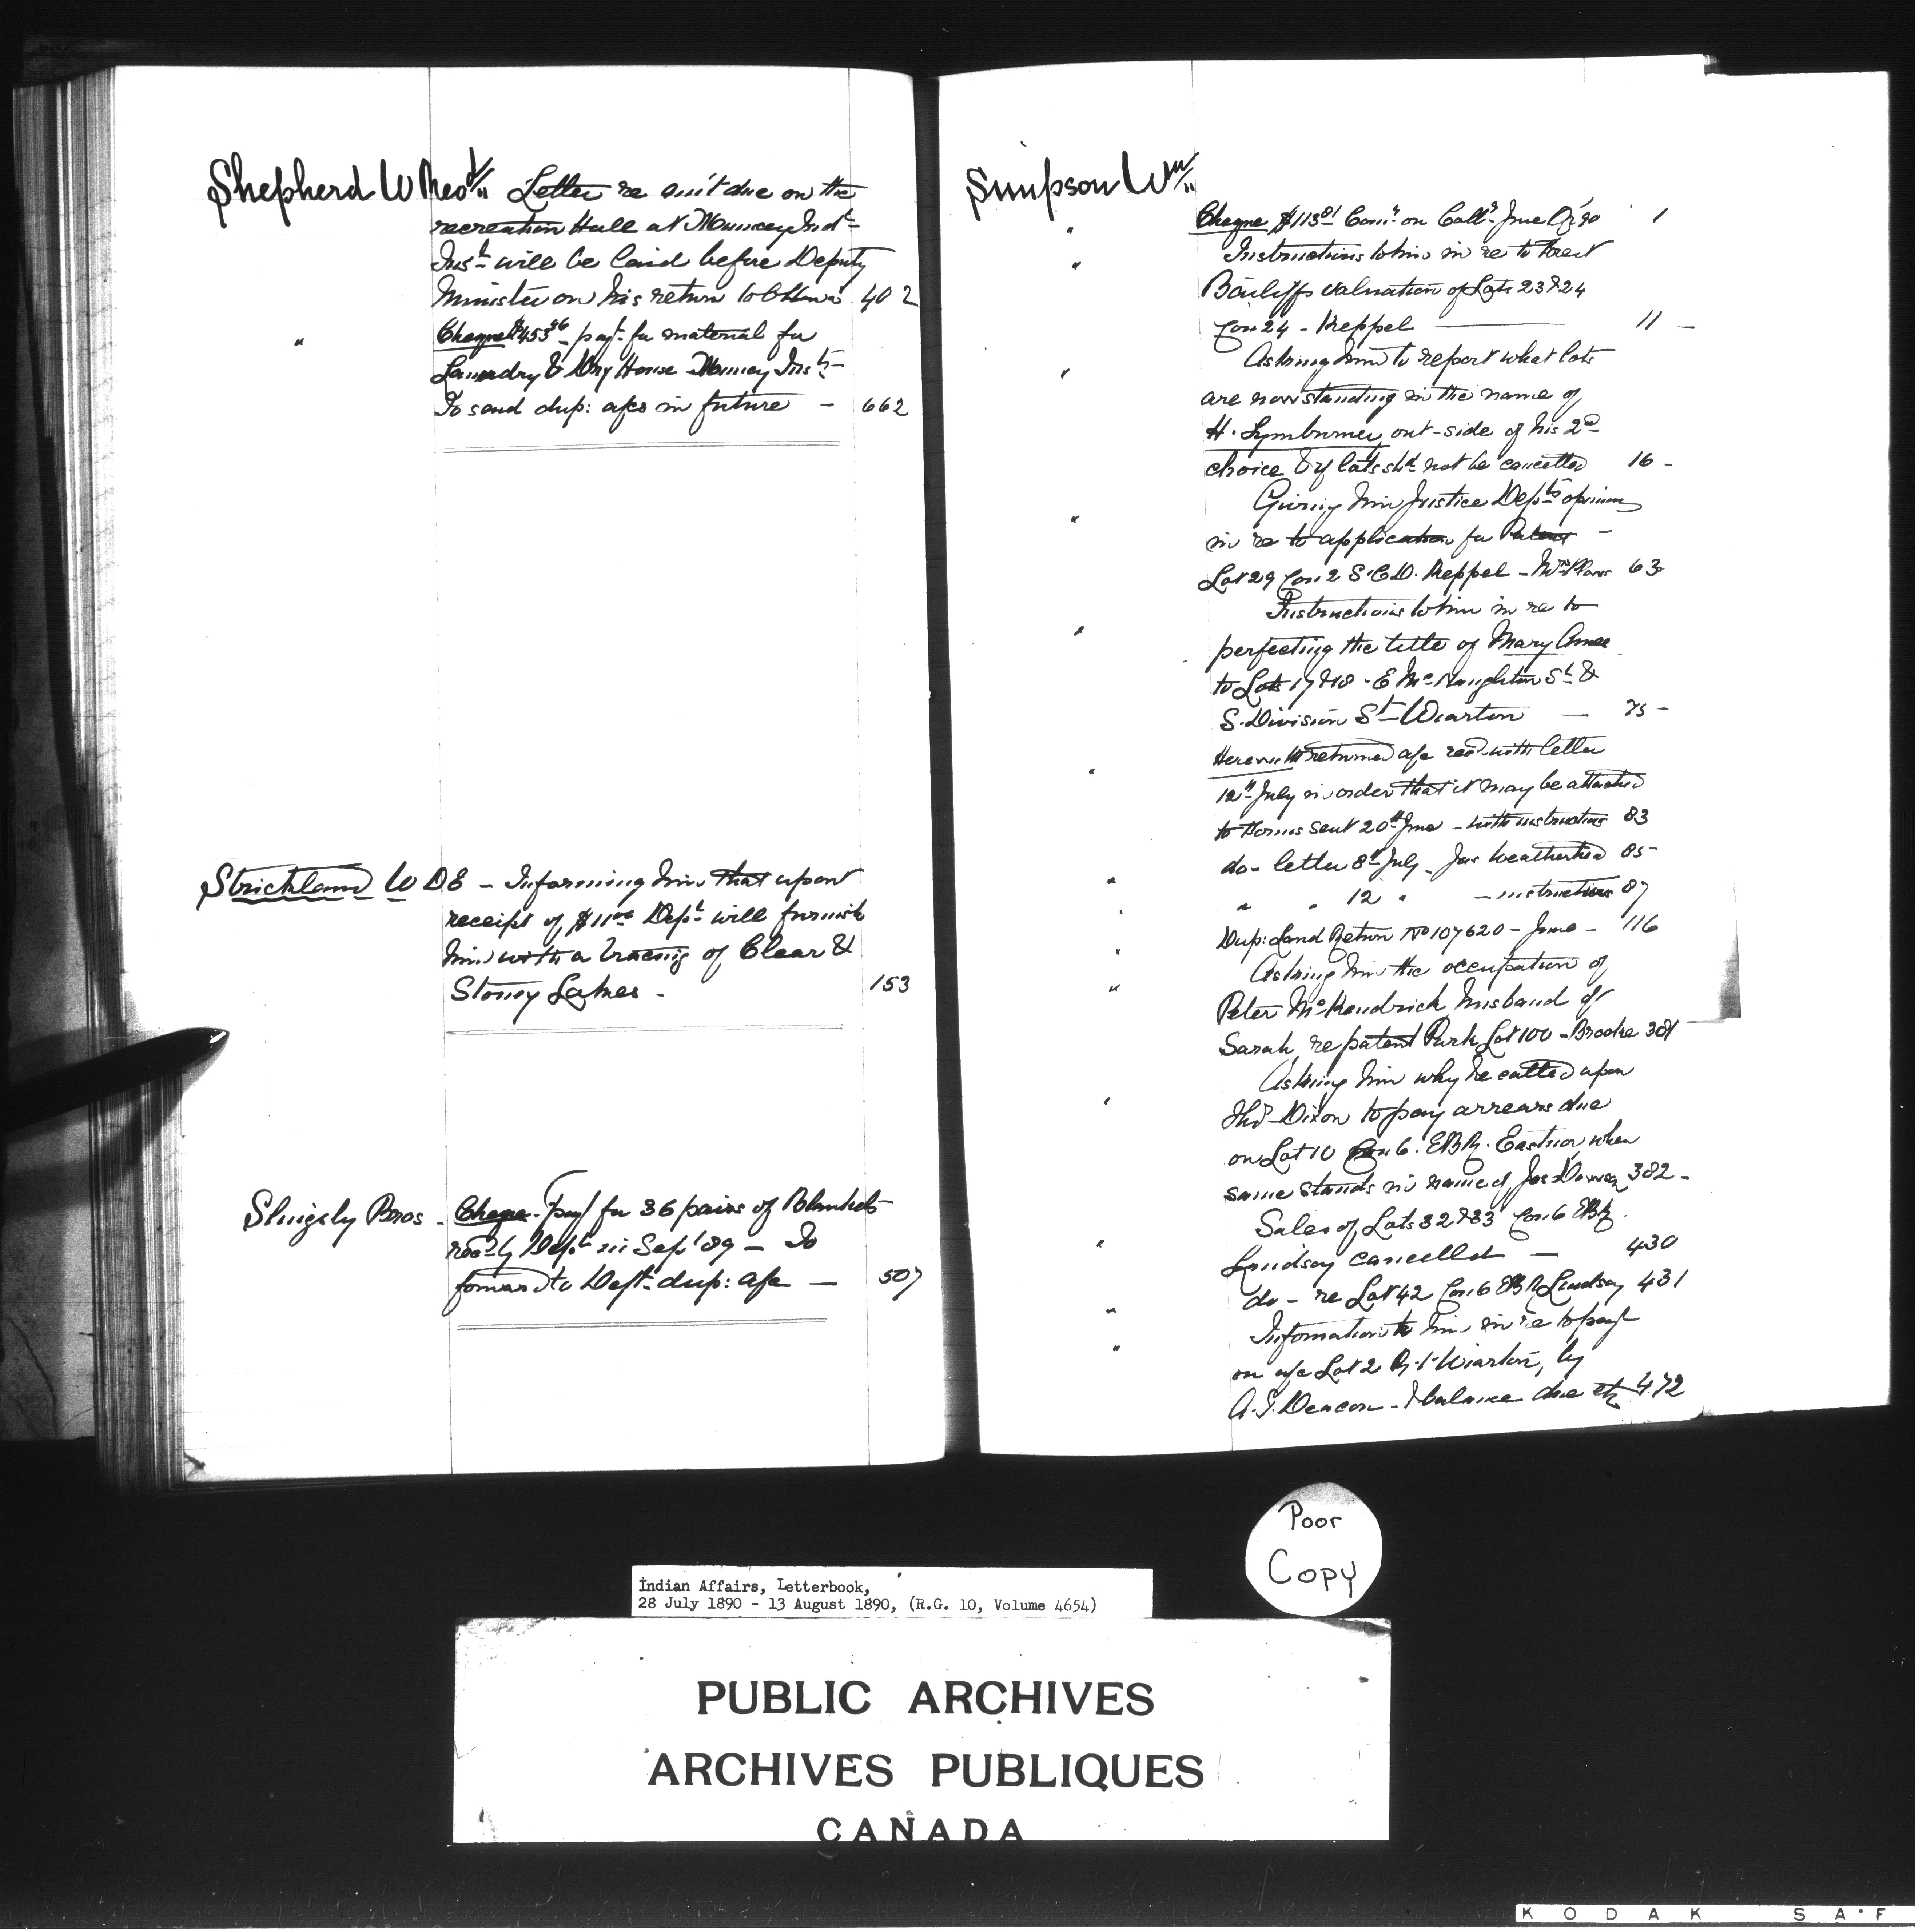 Shepherd W Letter re am't due on the
recreation Hall at Mouncey Ind.
Inst. will be laid before Deputy
Minister on his return to Ottawa 402
" Cheque $453.86 pay't for material for
Laundry & Dry House Mouncey Inst.
To send dup: a/cs in future — 662
Strickland W D E — Informing him that upon
receipt of $11.00 Dept will furnish
him with a tracing of Clear &
Stoney Lakes — 153
Slingsly Bros — Cheque pay't for 36 pairs of Blankets
rec'd by Dept in Sep' 89 — To
forward to Dept. dup: a/c — 507
Simpson Wm
" Cheque $113.81 Com. on Coll. June Q 90 1
" Instructions to him in re to
Bailiffs valuation of Lots 23 & 24
Con 24 — Keppel — 11 —
" Asking him to report what lots
are now standing in the name of
H. Lymburner, out-side of his 2nd
choice & if lots shd. not be cancelled 16 —
" Giving him Justice Dept's opinion
in re to application for Patent —
Lot 29 Con 2 S.C.D. Keppel — 63
" Instructions to him in re to
perfecting the title of Mary Ames
to Lots 17 & 18 — E McNaughton St. &
S. Division St. Wiarton — 75 —
" Herewith returned a/c rec'd with letter
12th July in order that it may be attached
to Forms sent 20th June — with instructions 83
" do — letter 8th July — Jas Weatherhead 85
" " " 12 " — instructions 87
" Dup: Land Return No 107620 — June — 116
" Asking him the occupation of
Peter McKendrick husband of
Sarah, re patent Park Lot 100 — Brooke 381
" Asking him why he called upon
Thos Dixon to pay arrears due
on Lot 10 Con 6. E.B.R. Eastnor, when
same stands in name of Jas 382 —
" Sales of Lots 32 & 33 Con 6 EBR
Lindsay cancelled — 430
" do — re Lot 42 Con 6 EBR Lindsay 431
" Information to him in re to pay't
on a/c Lot 2 Wiarton, by
A. S. Deacon — & balance due etc 472
Poor
Copy
Indian Affairs, Letterbook,
28 July 1890 - 13 August 1890, (R.G. 10, Volume 4654)
PUBLIC ARCHIVES
ARCHIVES PUBLIQUES
CANADA
KODAK SA·F